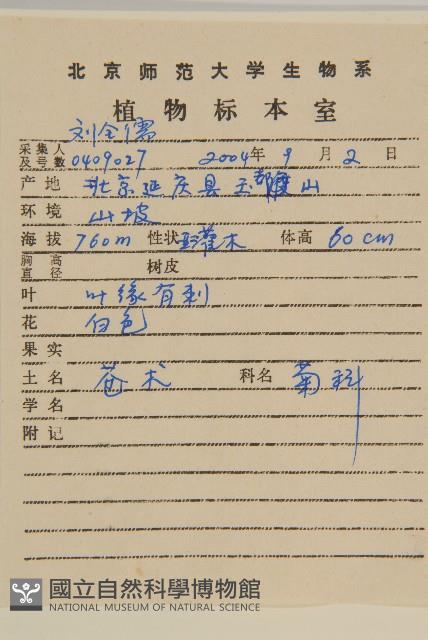 北京师范大学生物系
植物标本室
刘全儒
采集人及号数 0409027 2004年 9 月 2 日
产地 北京延庆县玉都山
环境 山坡
海拔 760m 性状 灌木 体高 60cm
胸高直径 树皮
叶 叶缘有刺
花 白色
果实
土名 苍术 科名 菊科
学名
附记
國立自然科學博物館
NATIONAL MUSEUM OF NATURAL SCIENCE